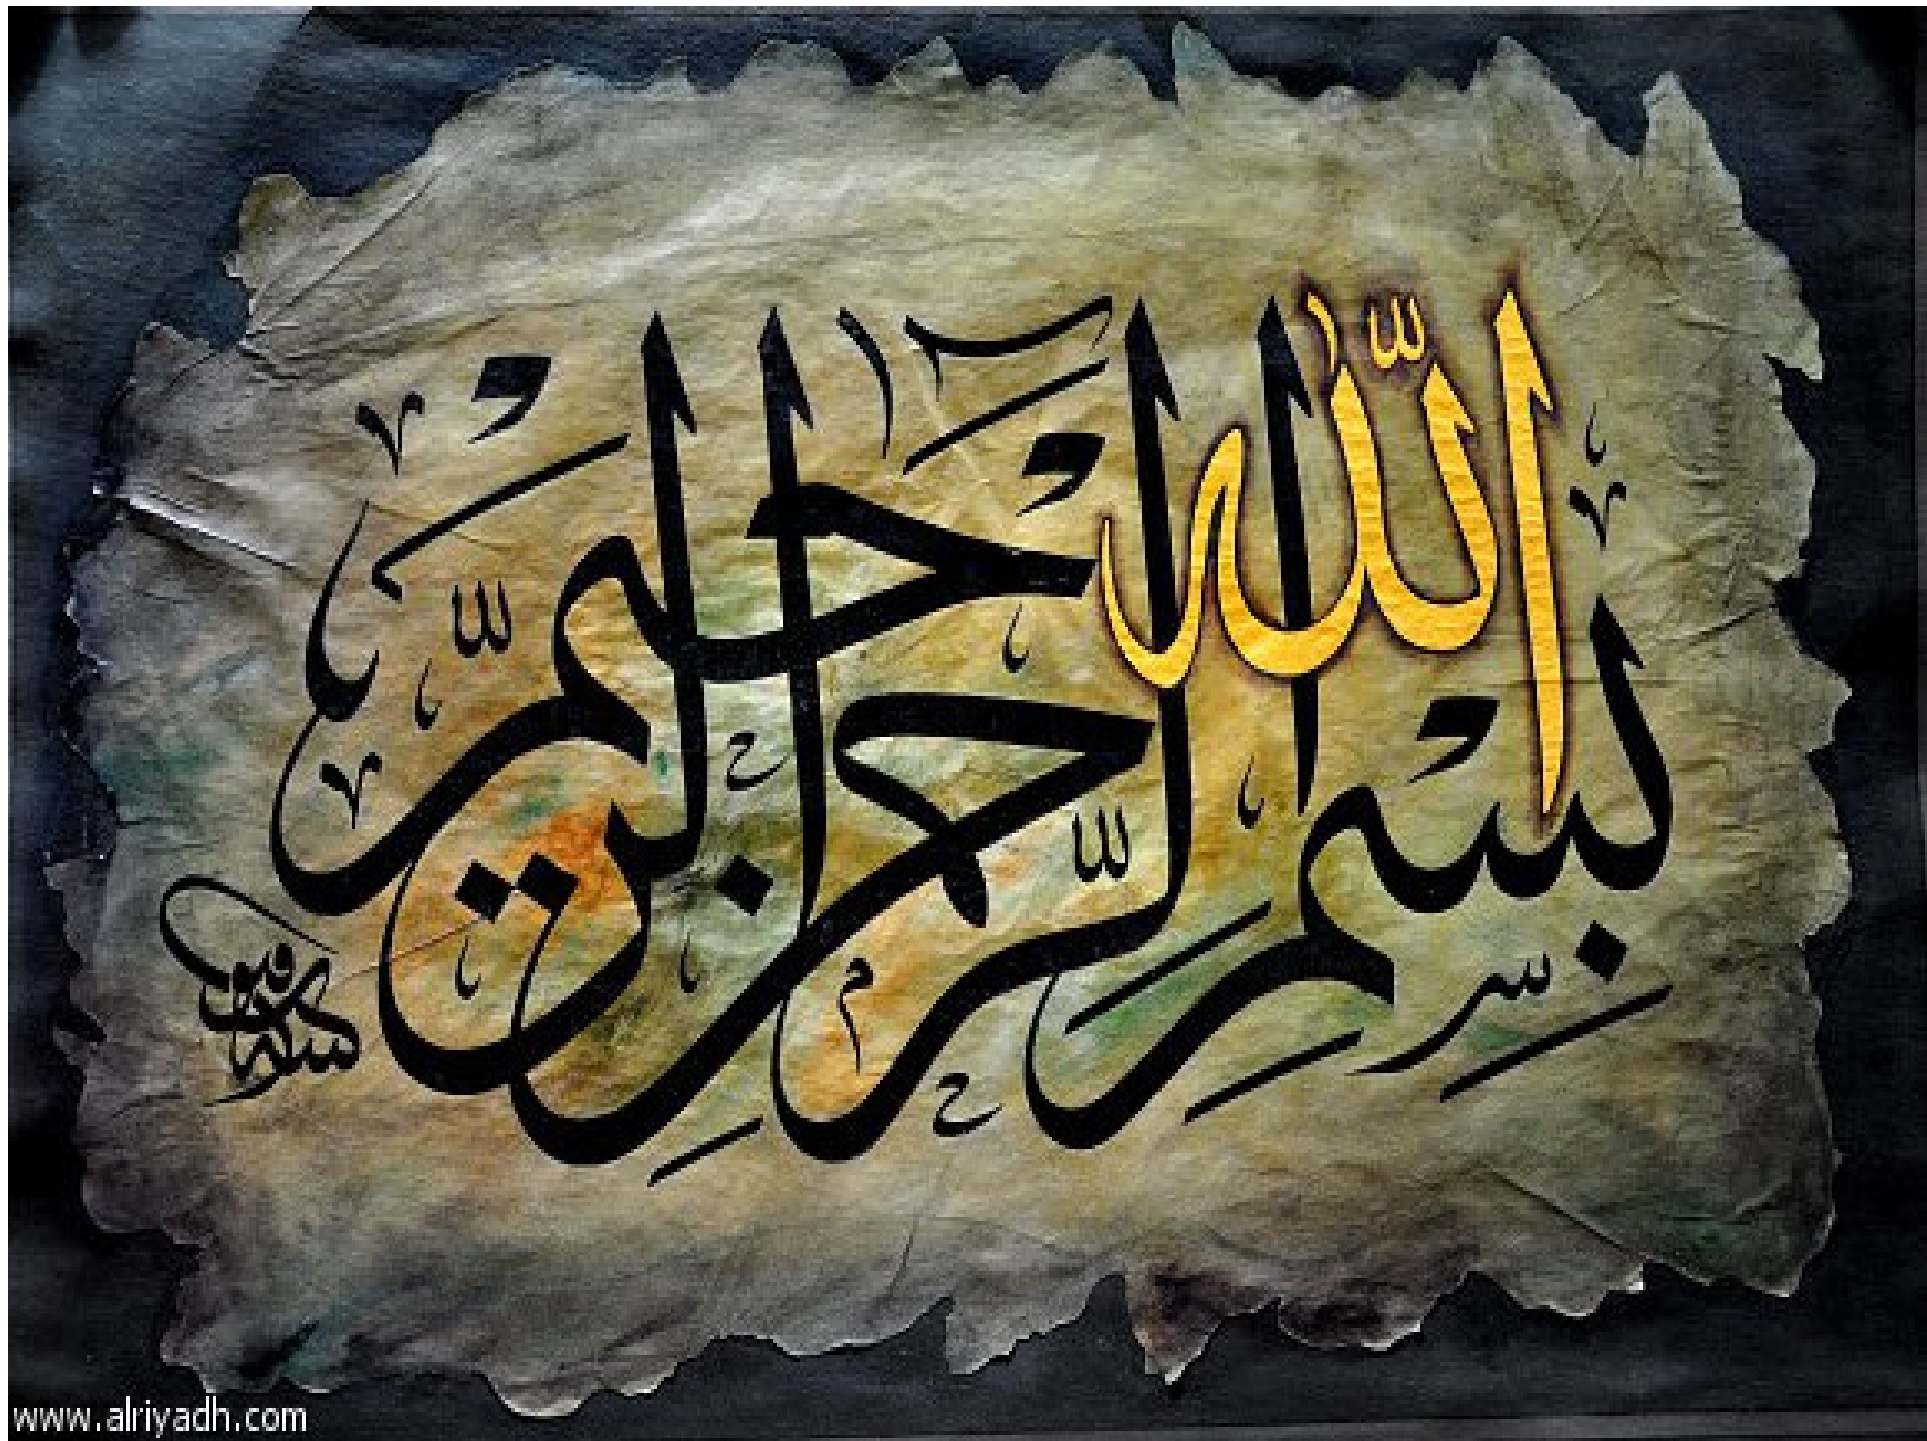 بسم الله الرحمن الرحيم
www.alriyadh.com